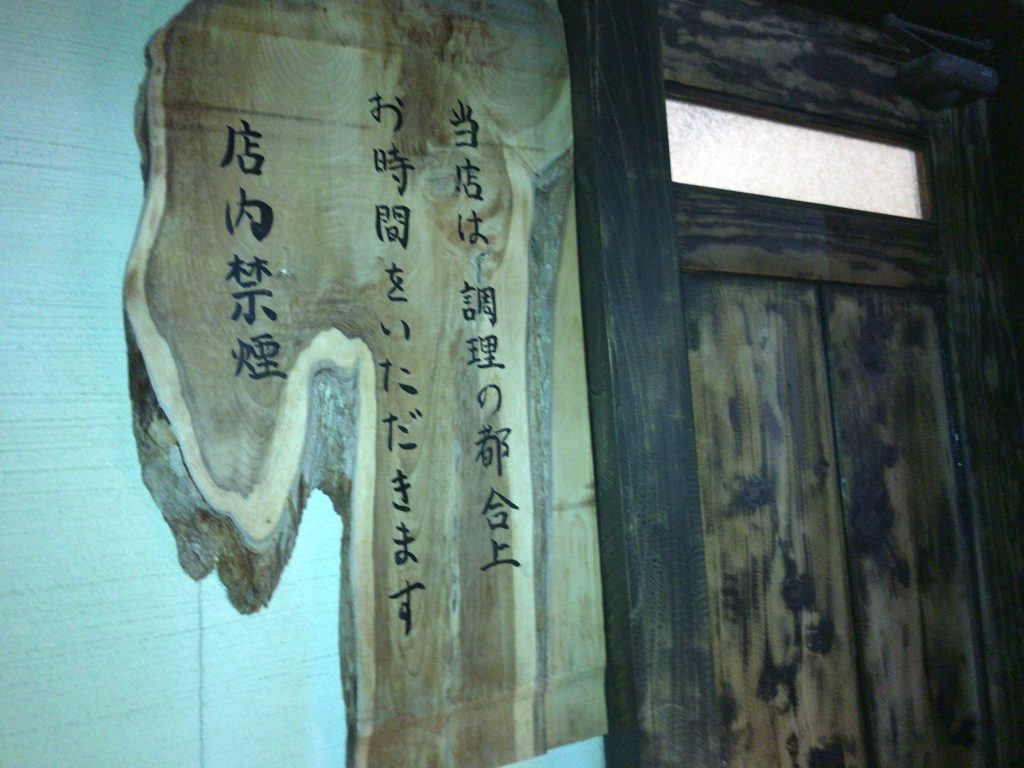 当店は調理の都合上
お時間をいただきます
店内禁煙